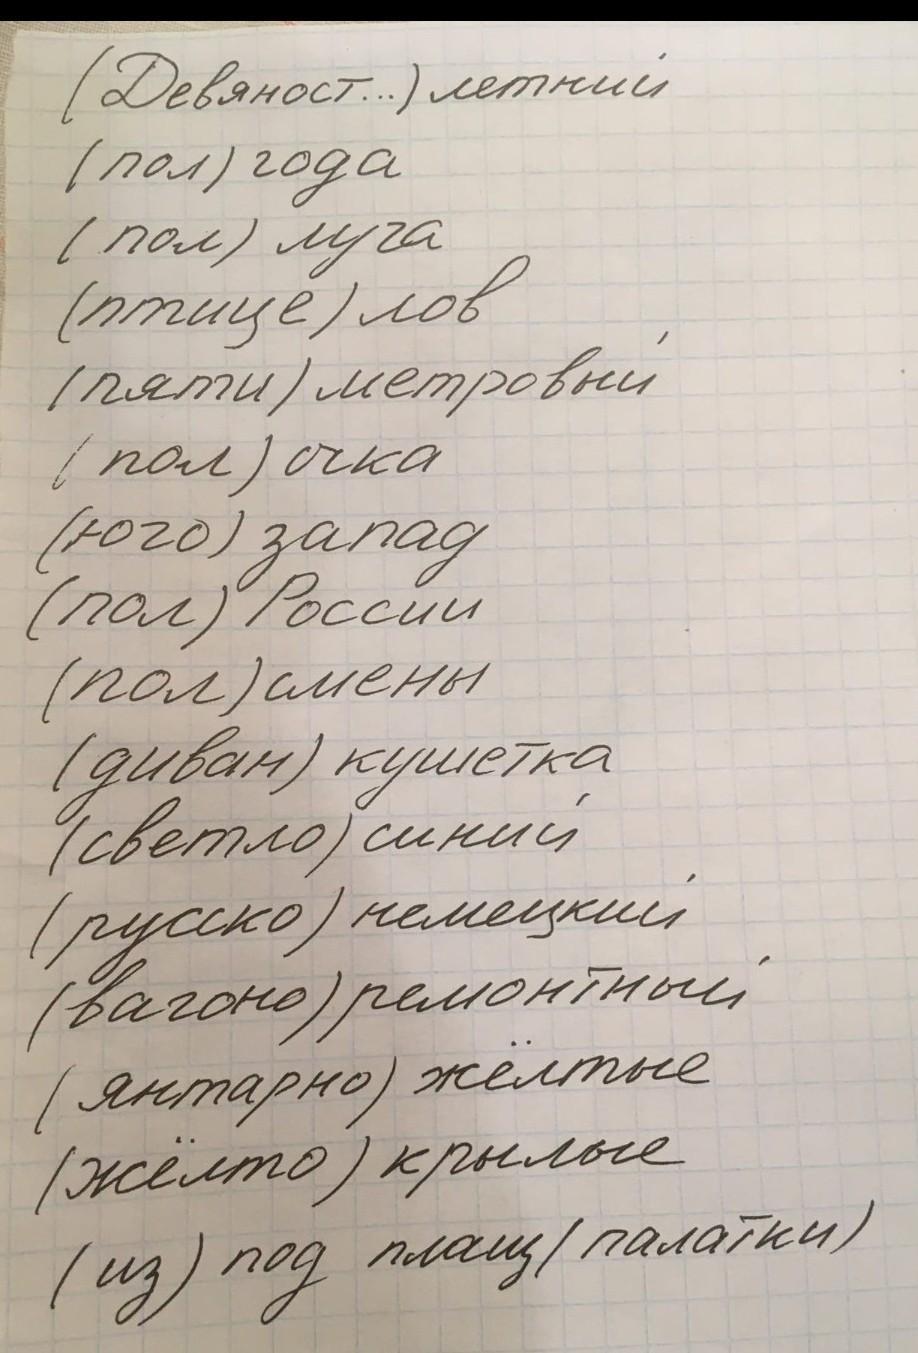 (Девяност...) летний
(пол) года
(пол) луга
(птице) лов
(пяти) метровый
(пол) очка
(юго) запад
(пол) России
(пол) смены
(диван) кушетка
(светло) синий
(русско) немецкий
(вагоно) ремонтный
(янтарно) жёлтые
(жёлто) крылые
(из) под плащ (палатки)